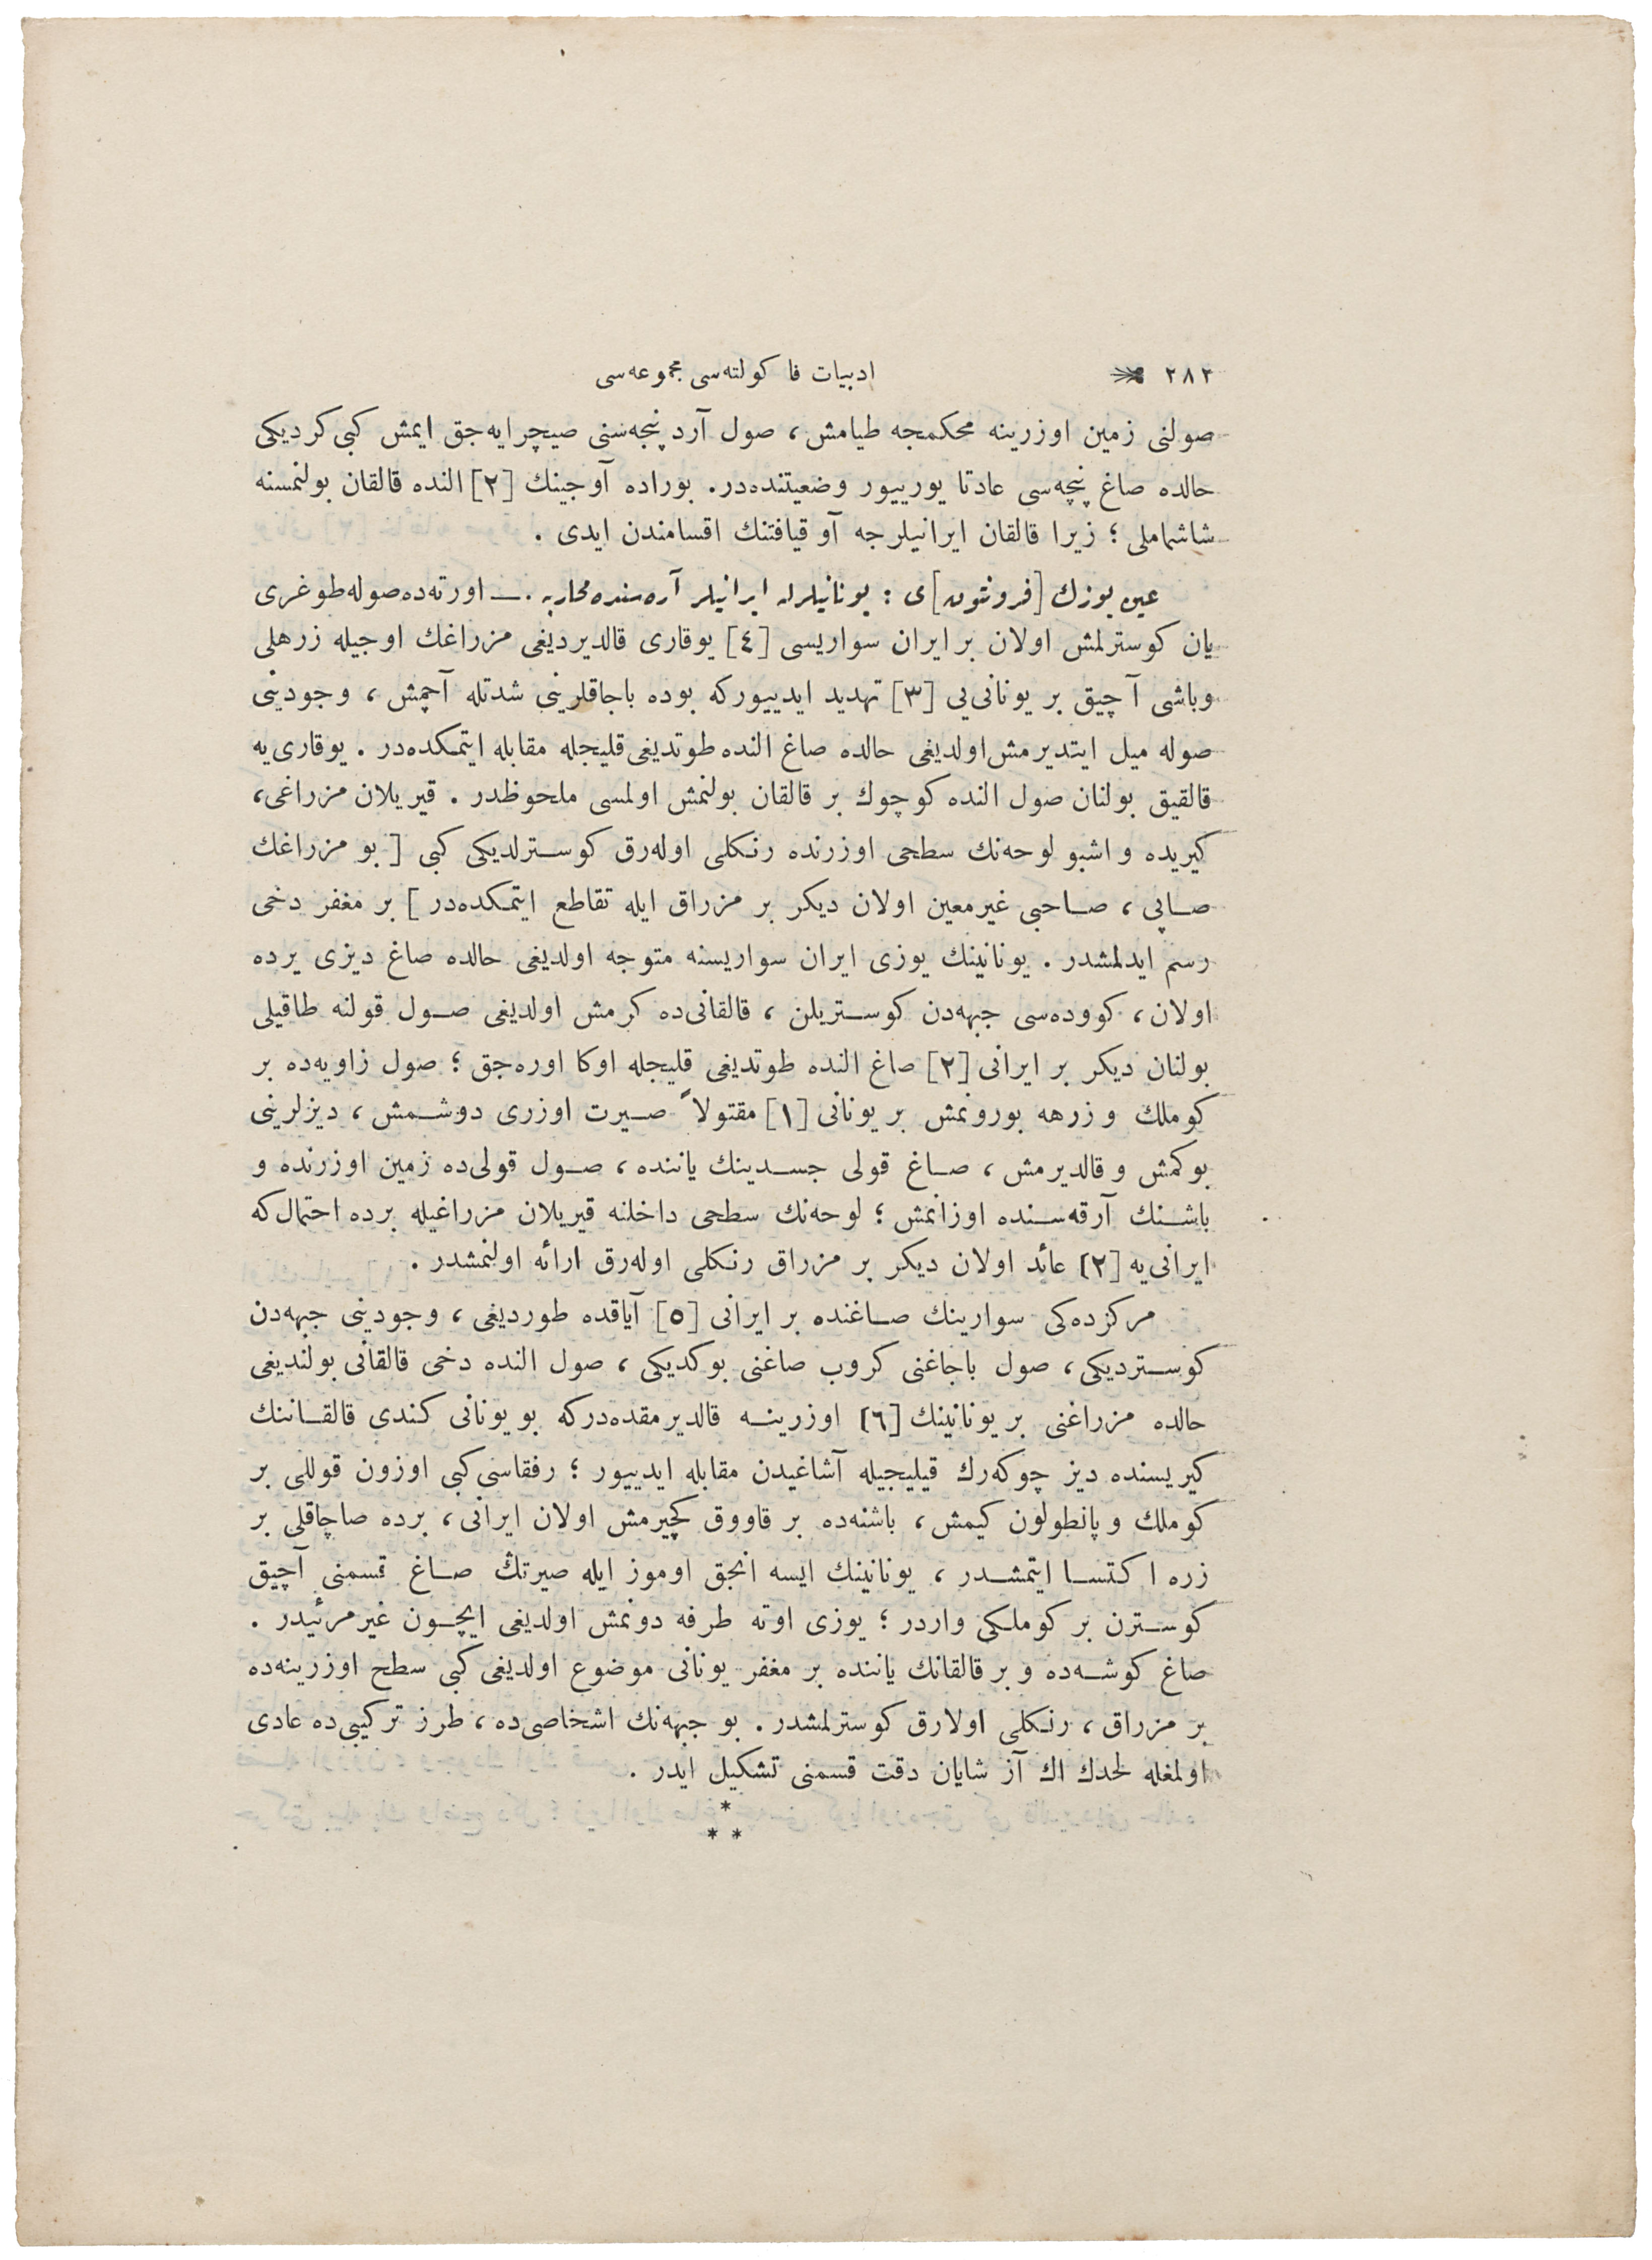 ٢٨٢ ادبيات فا كولته‌سی مجموعه‌سی
صولنی زمین اوزرینه محكمجه طیامش، صول آرد پنجه‌سنی صیچرایه‌جق ایمش كبی كردیكی
حالده صاغ پنچه‌سی عادتا یورییور وضعیتنده‌در. بوراده آوجینك [٢] النده قالقان بولنمسنه
شاشماملی ؛ زیرا قالقان ایرانیلرجه آو قیافتنك اقسامندن ایدی .
عین یوزك [فرونتون] ی : یونانیلرله ایرانیلر آره‌سنده محاربه . — اورته‌ده صوله طوغری
یان كوسترلمش اولان بر ایران سواریسی [٤] یوقاری قالدیردیغی مزراغك اوجیله زرهلی
وباشی آچیق بر یونانی‌یی [٣] تهدید ایدییوركه بوده باجاقلرینی شدتله آچمش ، وجودینی
صوله میل ایتدیرمش اولدیغی حالده صاغ النده طوتدیغی قلیجله مقابله ایتمكده‌در . یوقاری‌یه
قالقیق بولنان صول النده كوچوك بر قالقان بولنمش اولمسی ملحوظدر . قیریلان مزراغی،
كیریده و اشبو لوحه‌نك سطحی اوزرنده رنكلی اوله‌رق كوسترلدیكی كبی [ بو مزراغك
صاپی ، صاحبی غیرمعین اولان دیكر بر مزراق ایله تقاطع ایتمكده‌در ] بر مغفر دخی
رسم ایدلمشدر . یونانینك یوزی ایران سواریسنه متوجه اولدیغی حالده صاغ دیزی یرده
اولان ، كووده‌سی جبهه‌دن كوستریلن ، قالقانی‌ده كرمش اولدیغی صول قولنه طاقیلی
بولنان دیكر بر ایرانی [٢] صاغ النده طوتدیغی قلیجله اوكا اوره‌جق ؛ صول زاویه‌ده بر
كوملك و زرهه بورونمش بر یونانی [١] مقتولاً صیرت اوزری دوشمش ، دیزلرینی
بوكمش و قالدیرمش ، صاغ قولی جسدینك یاننده ، صول قولی‌ده زمین اوزرنده و
باشنك آرقه‌سنده اوزانمش ؛ لوحه‌نك سطحی داخلنه قیریلان مزراغیله برده احتمال كه
ایرانی‌یه [٢] عائد اولان دیكر بر مزراق رنكلی اوله‌رق ارائه اولنمشدر .
مركزده‌كی سوارینك صاغنده بر ایرانی [٥] آیاقده طوردیغی ، وجودینی جبهه‌دن
كوستردیكی ، صول باجاغنی كروب صاغنی بوكدیكی ، صول النده دخی قالقانی بولندیغی
حالده مزراغنی بر یونانینك [٦] اوزرینه قالدیرمقده‌دركه بو یونانی كندی قالقاننك
كیریسنده دیز چوكه‌رك قیلیجیله آشاغیدن مقابله ایدییور ؛ رفقاسی كبی اوزون قوللی بر
كوملك و پانطولون كیمش ، باشنه‌ده بر قاووق كچیرمش اولان ایرانی ، برده صاچاقلی بر
زره اكتسا ایتمشدر ، یونانینك ایسه انجق اوموز ایله صیرتڭ صاغ قسمنی آچیق
كوسترن بر كوملكی واردر ؛ یوزی اوته طرفه دونمش اولدیغی ایچون غیرمرئیدر .
صاغ كوشه‌ده و بر قالقانك یاننده بر مغفر یونانی موضوع اولدیغی كبی سطح اوزرینه‌ده
بر مزراق ، رنكلی اولارق كوسترلمشدر . بو جبهه‌نك اشخاصی‌ده ، طرز تركیبی‌ده عادی
اولمغله لحدك اك آز شایان دقت قسمنی تشكیل ایدر .
*
* *